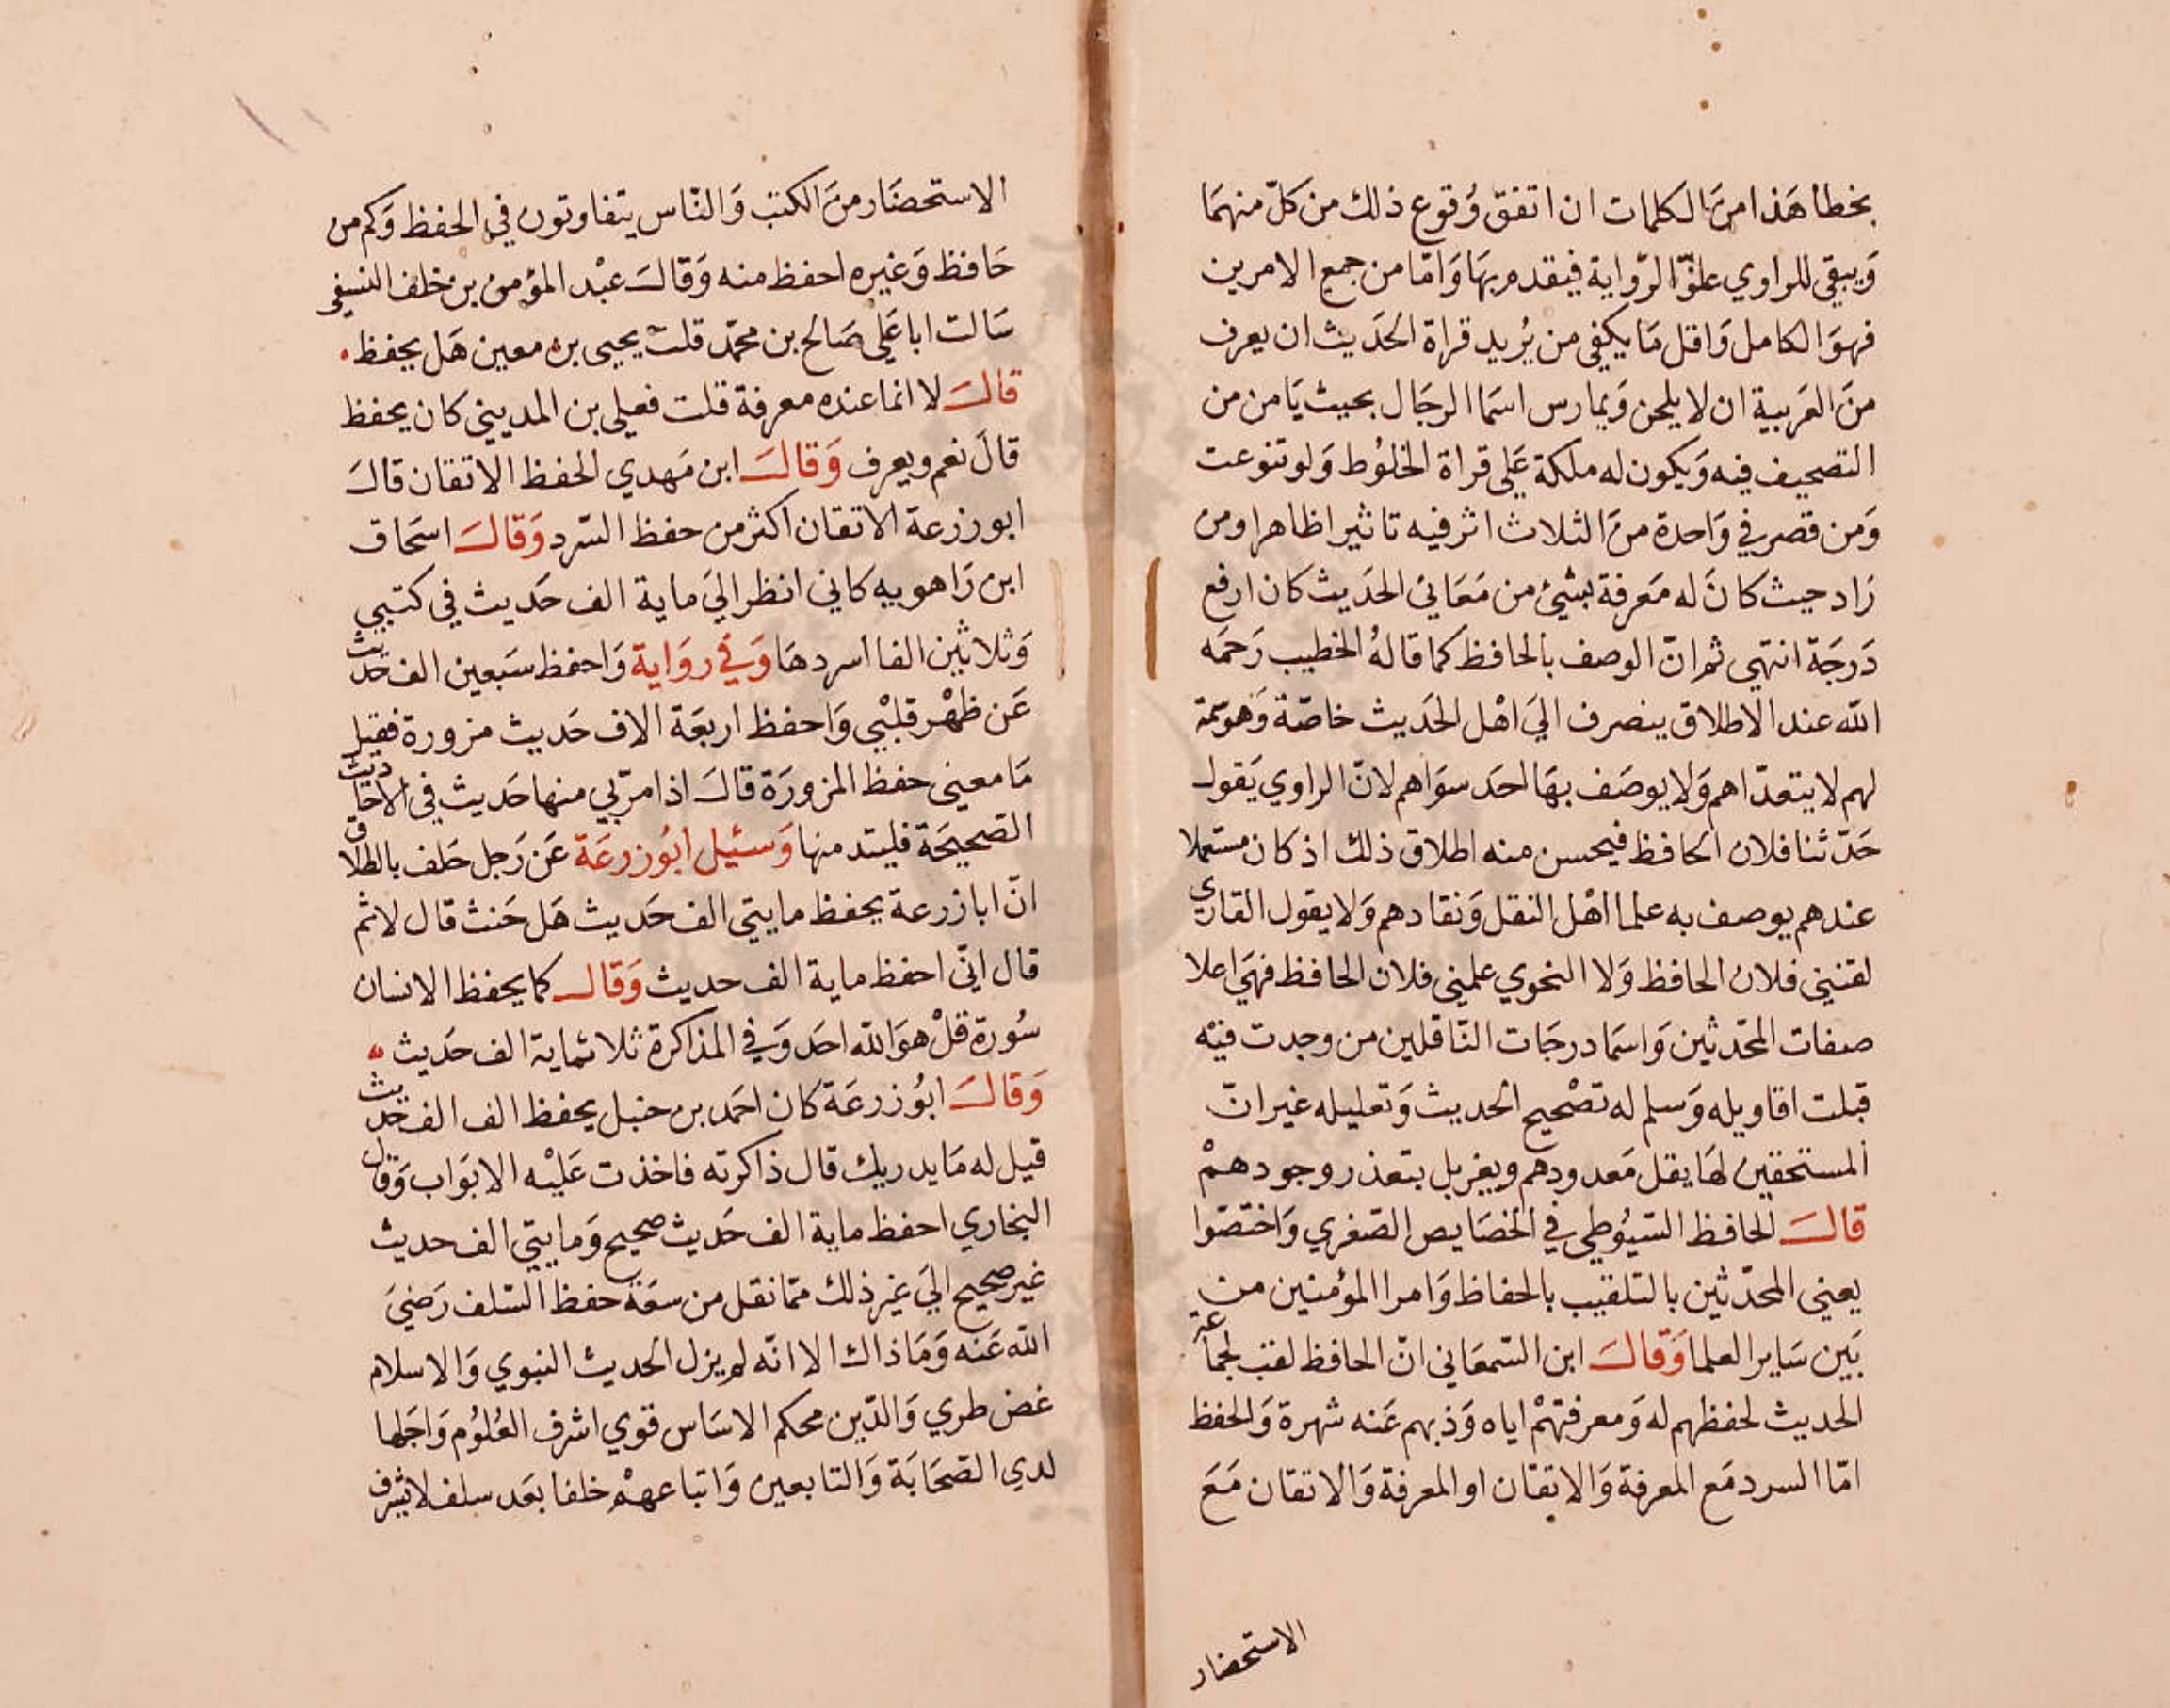 بخطا هَذا منَ الكلمات ان اتفق وُقوع ذلك من كلّ منهمَا
وَيبقي للراوي علوّ الرّواية فيقدم بهَا وَامّا من جمع الامرين
فهوَ الكامل وَاقل مَا يكفي من يُريد قراة الحَديث ان يعرف
منَ العَربية ان لا يلحن وَيمارس اسمَا الرجَال بحيث يَامن من
التصحيف فيه وَيكون له ملكة عَلي قراة الخلوُط وَلو تنوعت
وَمن قصر في وَاحدة منَ الثلاث اثر فيه تاثيرا ظاهرا ومن
زاد حيث كانَ له مَعرفة بشيئ من مَعَاني الحَديث كان ارفع
دَرجَة انتهي ثم انّ الوصف بالحافظ كما قالهُ الخطيب رَحمَه
الله عند الاطلاق ينصرف الَي اهْل الحَديث خاصّة وَهوَ سمة
لهم لا يتعدّاهم وَلا يوصَف بهَا احَد سوَاهم لانّ الراوي يَقول
حَدّثنا فلان الحافظ فيحسن منه اطلاق ذلك اذ كان مستعملا
عندهم يوصف به علما اهْل النقل وَنقادهم وَلا يقول القاري
لقنني فلان الحافظ وَلا النحوي علمني فلان الحافظ فهيَ اعلا
صفات المحّدثين وَاسمَا درجَات النّاقلين من وجدت فيْه
قبلت اقاويله وَسلم له تصْحيح الحديث وَتعليله غير انّ
المستحقين لهَا يقل مَعدودهم ويغز بل يتعذر وجودهمْ
قالَ الحافظ السّيوُطي في الخصَايص الصّغري وَاختصّوا
يعني المحدّثين بالتلقيب بالحفاظ وَامرا المؤمنين من
بَين سَاير العلما وَقالَ ابن السّمعَاني انّ الحافظ لقب لجماعة
الحديث لحفظهم له وَمعرفتهمْ اياه وَذبهم عَنه شهرة وَالحفظ
امّا السرد مَع المعرفة وَالاتقان او المعرفة وَالاتقان مَعَ
الاستحضار
الاستحضَار منَ الكتب وَالنّاس يتفاوتون في الحفظ وَكم من
حَافظ وَغيره احفظ منه وَقالَ عبْد المؤمن بن خلف النسفي
سَالت ابا عَلي صَالح بن محمّد قلت يحيى بن معين هَل يحفظ
قالَ لا انما عنده معرفة قلت فعلي بن المديني كان يحفظ
قالَ نعم ويعرف وَقالَ ابن مَهدي الحفظ الاتقان قالَ
ابو زرعة الاتقان اكثر من حفظ السّرد وَقالَ اسحَاق
ابن رَاهويه كاني انظر الَي ماية الف حَديث في كتبي
وَثلاثين الفا اسردهَا وَفي روَاية وَاحفظ سَبعين الف حَديث
عَن ظهْر قلبْي وَاحفظ اربعَة الاف حَديث مزورة فقيل
مَا معيني حفظ المزورَة قالَ اذا مرّ بي منها حَديث في الاحَاديث
الصّحيحَة فليتد منها وَسئيل ابُو زرعَة عَن رَجل حَلف بالطلاق
انّ ابا زرعة يحفظ مايتي الف حَديث هَل حَنث قال لا ثم
قال انّي احفظ ماية الف حديث وَقال كما يحفظ الانسان
سُورة قلْ هوَ الله احَد وَفي المذاكرة ثلاثماية الف حَديث
وَقالَ ابُو زرعَة كان احمَد بن حنبل يحفظ الف الف حَديث
قيل له مَا يدريك قال ذاكرته فاخذت عَليْه الابوَاب وَقال
البخاري احفظ ماية الف حَديث صحيح وَمايتي الف حديث
غير صحيح الَي غير ذلك ممّا نقل من سعَة حفظ السّلف رَضيَ
الله عَنه وَمَا ذاك الا انّه لم يزل الحديث النبوي وَالاسلام
غض طري وَالدّين محكم الاسَاس قوي اشرف العُلوُم وَاجَلها
لدي الصّحَابَة وَالتابعين وَاتباعهمْ خلفا بعَد سلف لا يشرف